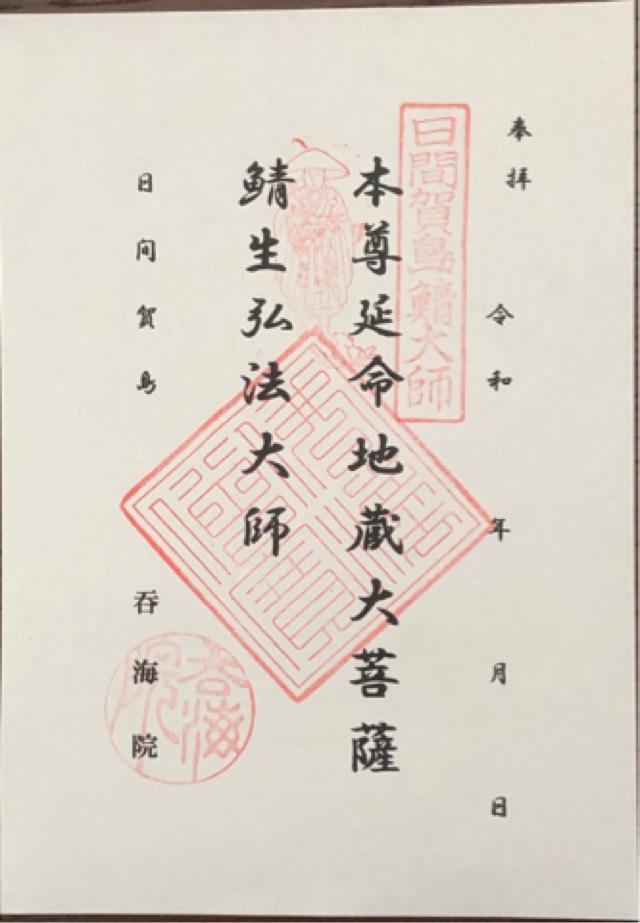 奉拝 令和 年 月 日
日間賀島鯖大師
本尊延命地蔵大菩薩
鯖生弘法大師
日间賀島 呑海院
呑海院